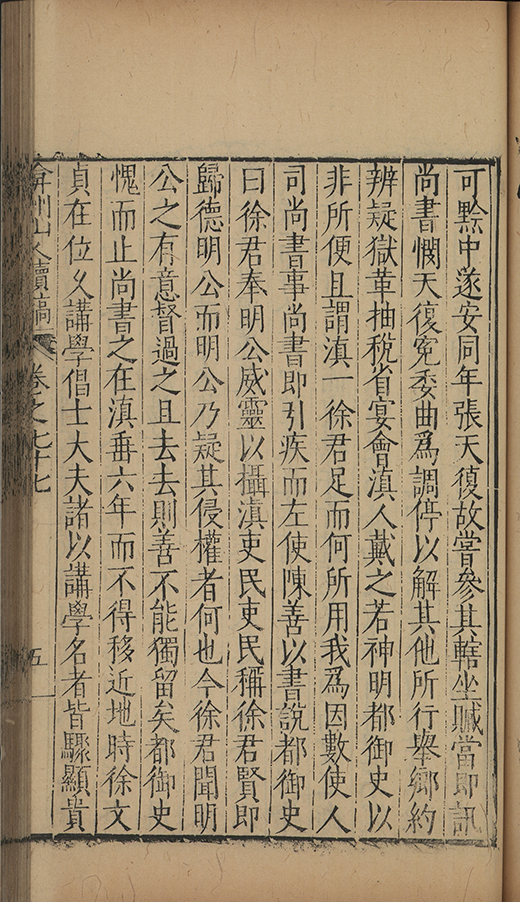 可黔中遂安同年張天復故嘗參其轄坐贓當即訊
尚書憫天復冤委曲爲調停以解其他所行舉鄉約
辨疑獄革抽稅省宴會滇人戴之若神明都御史以
非所便且謂滇一徐君足而何所用我爲因數使人
司尚書事尚書即引疾而左使陳善以書說都御史
曰徐君奉明公威靈以攝滇吏民吏民稱徐君賢即
歸德明公而明公乃疑其侵權者何也今徐君聞明
公之有意督過之且去去則善不能獨留矣都御史
愧而止尚書之在滇垂六年而不得移近地時徐文
貞在位乆講學倡士大夫諸以講學名者皆驟顯貴
弇州山人續稿 卷之七十七 五